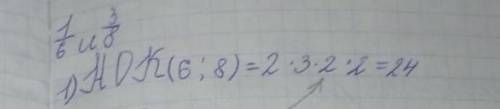 1/6 и 3/8
1) НОК(6;8)=2·3·2·2=24